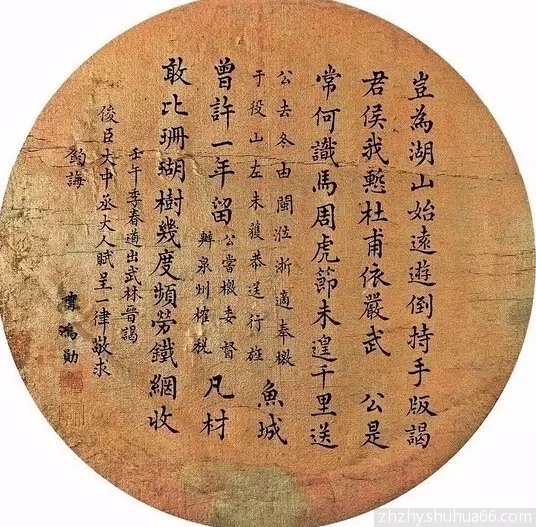 豈為湖山始遠遊倒持手版謁
君侯我慙杜甫依嚴武 公是
常何識馬周虎節未遑千里送
公去冬由閩涖浙適奉檄
于役山左未獲恭送行旌
魚城
曾許一年留
公嘗檄委督
辦泉州榷稅
凡材
敢比珊瑚樹幾度頻勞鐵網收
壬午季春道出武林晉謁
俊臣大中丞大人賦呈一律敬求
鈞誨
曹鴻勛
zhzhy.shuhua66.com